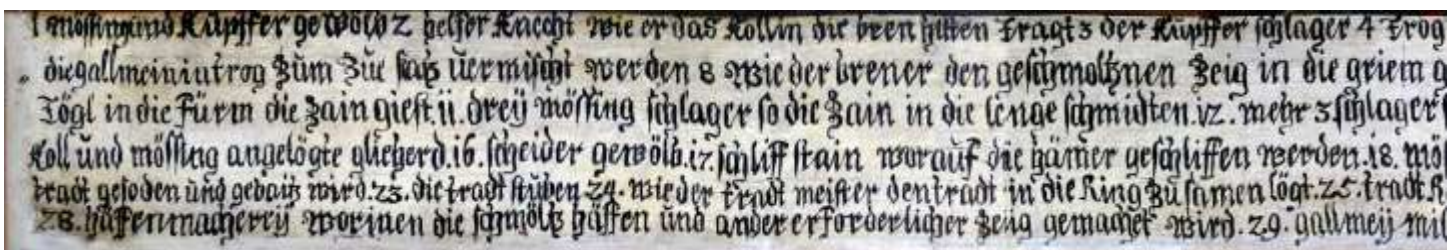 1 mössing und Kupffer gewölb 2 helfer Knecht wie er das Kollin die bren hitten Tragt 3 der Kupffer schlager 4 Trog
die gallmein in trog zum zue saz vermischt werden 8 wie der brener den geschmoltznen Zeig in die griem g
Tögl in die Fürm die Zain giest. 11. drey mössing schlager so die Zain in die lenge schmidten. 12. mehr 3 schlager
Koll und mössing angelögte glieherd. 16. scheider gewölb. 17. schliff stain worauf die hamer geschliffen werden. 18. mös
tradt gesoden und gebaitz wird. 23. die tradt stuben 24. wie der tradt meister den tradt in die Ring zu samen lögt. 25. tradt K
28. haffenmacherey worinen die schmöltz häffen und ander erforderlicher Zeug gemachet wird. 29. gallmey mil